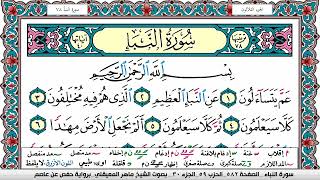 الجزء الثلاثون
سُورَةُ النَّبَإِ
بِسْمِ ٱللَّهِ ٱلرَّحْمَٰنِ ٱلرَّحِيمِ
عَمَّ يَتَسَآءَلُونَ ١ عَنِ ٱلنَّبَإِ ٱلْعَظِيمِ ٢ ٱلَّذِى هُمْ فِيهِ مُخْتَلِفُونَ ٣
كَلَّا سَيَعْلَمُونَ ٤ ثُمَّ كَلَّا سَيَعْلَمُونَ ٥ أَلَمْ نَجْعَلِ ٱلْأَرْضَ مِهَٰدًا ٦
سورة النباء الصفحة ٥٨٢ الحزب ٥٩ الجزء ٣٠ بصوت الشيخ ماهر المعيقلي برواية حفص عن عاصم